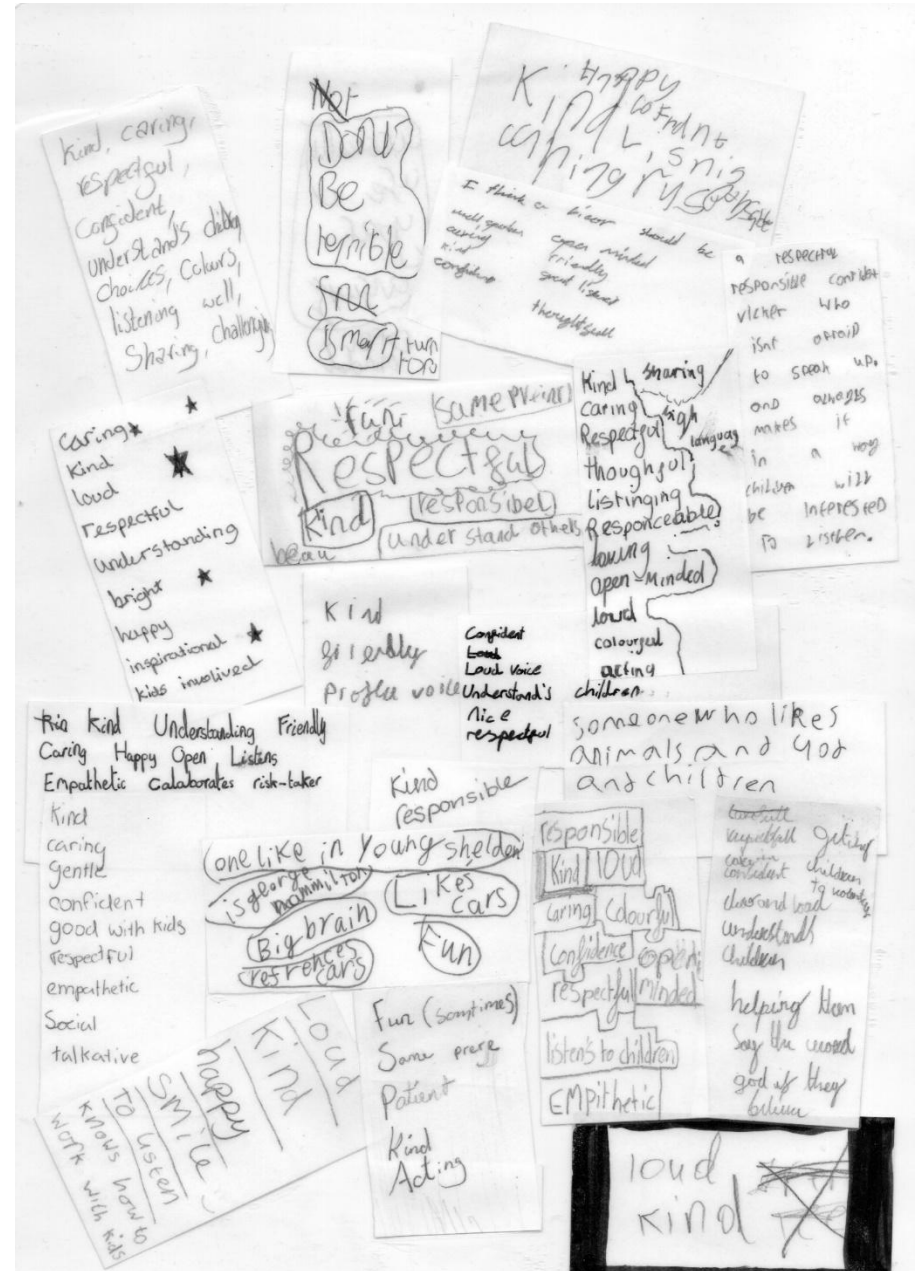 Kind, caring,
respectful,
Confident,
understand's children
choices, Colours,
listening well,
Sharing, challenging
Not
DONT
Be
terrible
Smart
turn
tors
Happy
Kind
L isnig
caring
I think a should be
well spoken open minded
caring friendly
kind good listener
confident
thoughtfull
a respectful
responsible confident
vicker who
isnt afraid
to speak up.
and always
makes it
in a way
children will
be interested
to listhen.
caring
Kind
loud
respectful
understanding
bright
happy
inspirational
kids involived
fun
same
Respectful
Kind
responsibel
understand others
Kind sharing
Caring
Respectful high
language
thoughful
Listinging
Responceable
loving
open-Minded
lowd
colourful
acting
Kind
friendly
voice
Confident
Loud
Loud voice
Understand's children
Nice
respectful
Kind Understanding Friendly
Caring Happy Open Listens
Empathetic Calaborates risk-taker
someone who likes
animals and god
and children
Kind
responsible
Kind
caring
gentle
confident
good with kids
respectful
empathetic
Social
talkative
one like in young shelden
is george hammilton
Likes cars
Big brain
Fun
refrences cars
responsible
Kind loud
caring Colourful
Confidence open
respectful minded
listen's to children
EMPithetic
respectfull
confident children
understands
children
helping them
Say the word
god if they
Loud
Kind
happy
SMile
To listen
knows how to
work with kids
Fun (somtimes)
Same
Patient
Kind
Acting
loud
kind